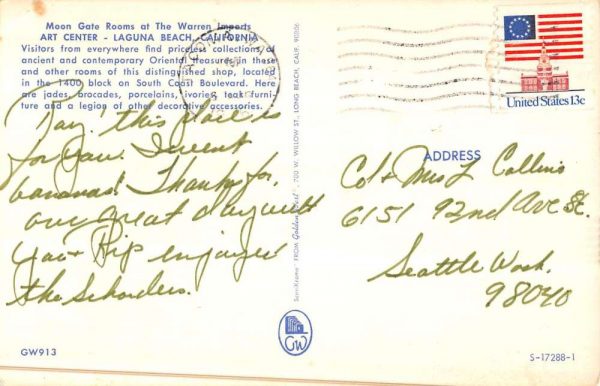 Moon Gate Rooms at The Warren Imports
ART CENTER - LAGUNA BEACH, CALIFORNIA
Visitors from everywhere find priceless collections of
ancient and contemporary Oriental treasures in these
and other rooms of this distinguished shop, located
in the 1400 block on South Coast Boulevard. Here
are jades, brocades, porcelains, ivories, teak furni-
ture and a legion of other decorative accessories.
this place is
for you. I went
bananas! Thanks for
one great day with
you + Rip enjoyed
the Schorders.
GW913
700 W. WILLOW ST., LONG BEACH, CALIF. 90806
FROM Golden West
GW
United States 13c
ADDRESS
Col + Mrs L Collins
6151 92nd Ave SE.
Seattle Wash.
98040
S-17288-1